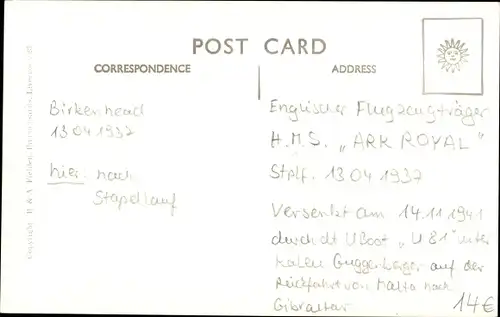 POST CARD
CORRESPONDENCE
ADDRESS
Birkenhead
13 04 1937
hier: nach
Stapellauf
Englischer Flugzeugträger
H.M.S. „ARK ROYAL"
Stplf. 13 04 1937
Versenkt am 14.11.1941
durch dt UBoot „U 81" unter
Kaleu Guggenberger auf der
Rückfahrt von Malta nach
Gibraltar
14€